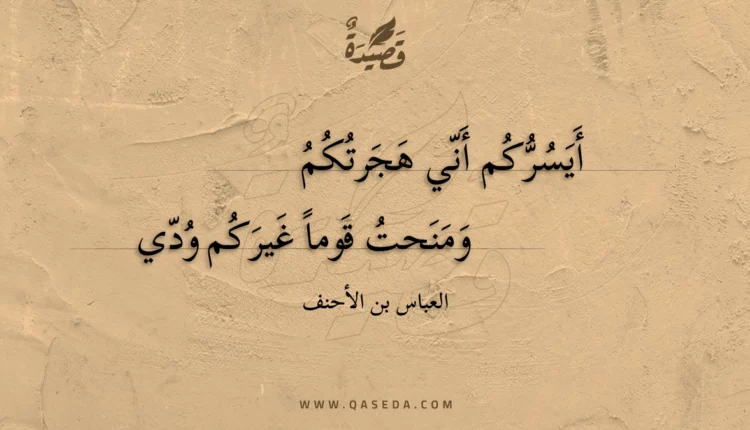 قَصِيدَةٌ
أَيَسُرُّكُم أَنّي هَجَرتُكُمُ
وَمَنَحتُ قَوماً غَيرَكُم وُدّي
العباس بن الأحنف
WWW.QASEDA.COM